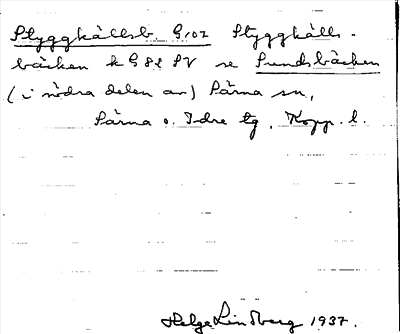 Styggkällsb. G,02 Styggkälls-
bäcken k G 82 SV se Sundsbäcken
(i södra delen av) Särna sn,
Särna o. Idre tg, Kopp. l.
Helge Lindberg 1937.